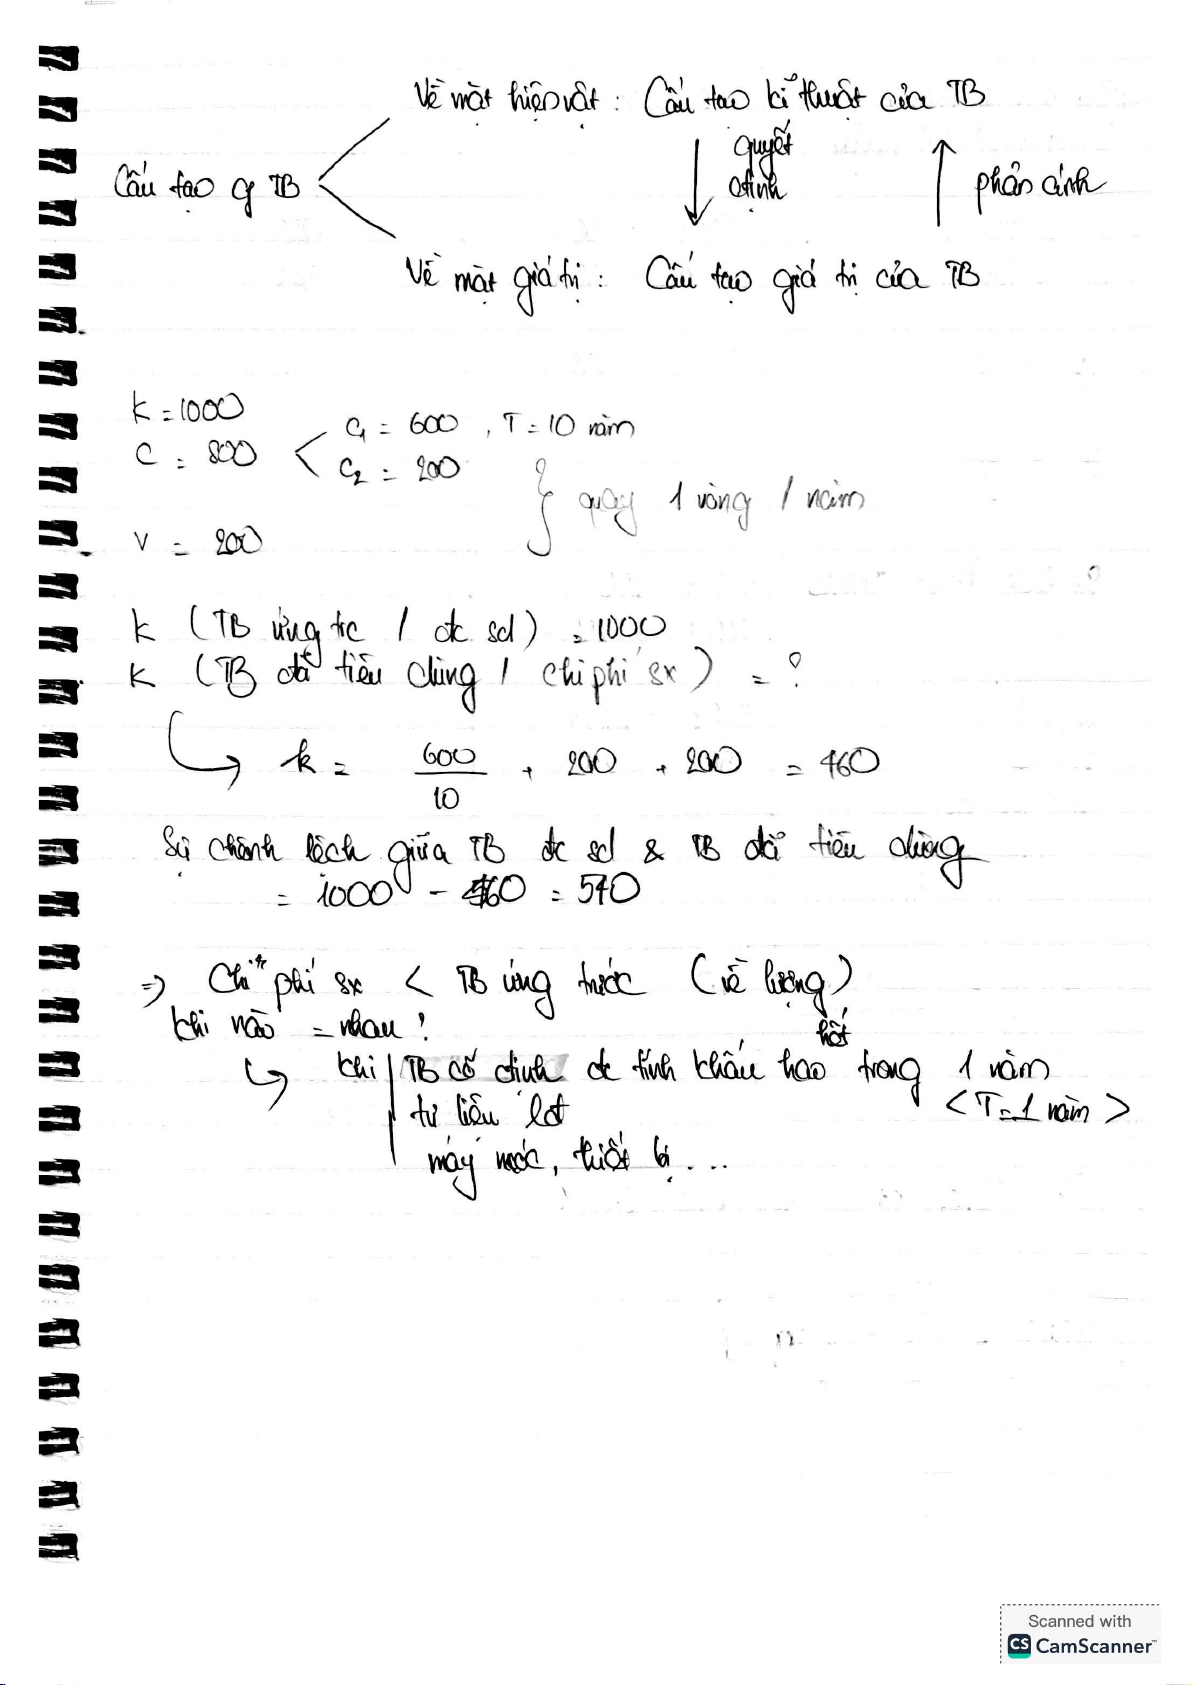 Về mặt hiện vật : Cấu tạo kĩ thuật của TB
quyết
định
phản ánh
Cấu tạo q TB
Về mặt giá trị : Cấu tạo giá trị của TB
K = 1000
C = 800
C1 = 600 , T = 10 năm
C2 = 200
quay 1 vòng / năm
V = 200
K (TB ứng trc / đc sd) = 1000
K (TB đã tiêu dùng / chi phí sx) = ?
k = 600/10 + 200 + 200 = 460
Sự chênh lệch giữa TB đc sd & TB đã tiêu dùng
= 1000 - 460 = 540
=> Chi phí sx < TB ứng trước (về lượng)
Khi nào = nhau ?
hết
Khi TB cố định đc tính khấu hao trong 1 năm
<T=1 năm>
tư liệu lđ
máy móc, thiết bị ...
Scanned with
CS CamScanner™